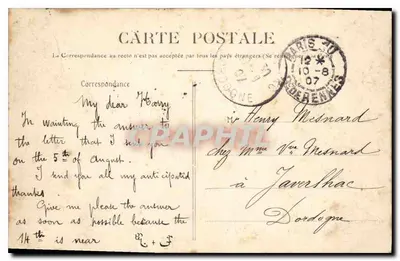 CARTE POSTALE
La Correspondance au recto n'est pas acceptée par tous les pays étrangers
Correspondance
My dear Harry
In wanting the answer to
the letter that I send you
on the 5th of August.
I send you all my anticipated
thanks
Give me please the answer
as soon as possible because the
14th is near
PARIS
12
10-8
07
Henry Mesnard
chez Mme Vve Mesnard
à Javerlhac
Dordogne
PRCARTE.com